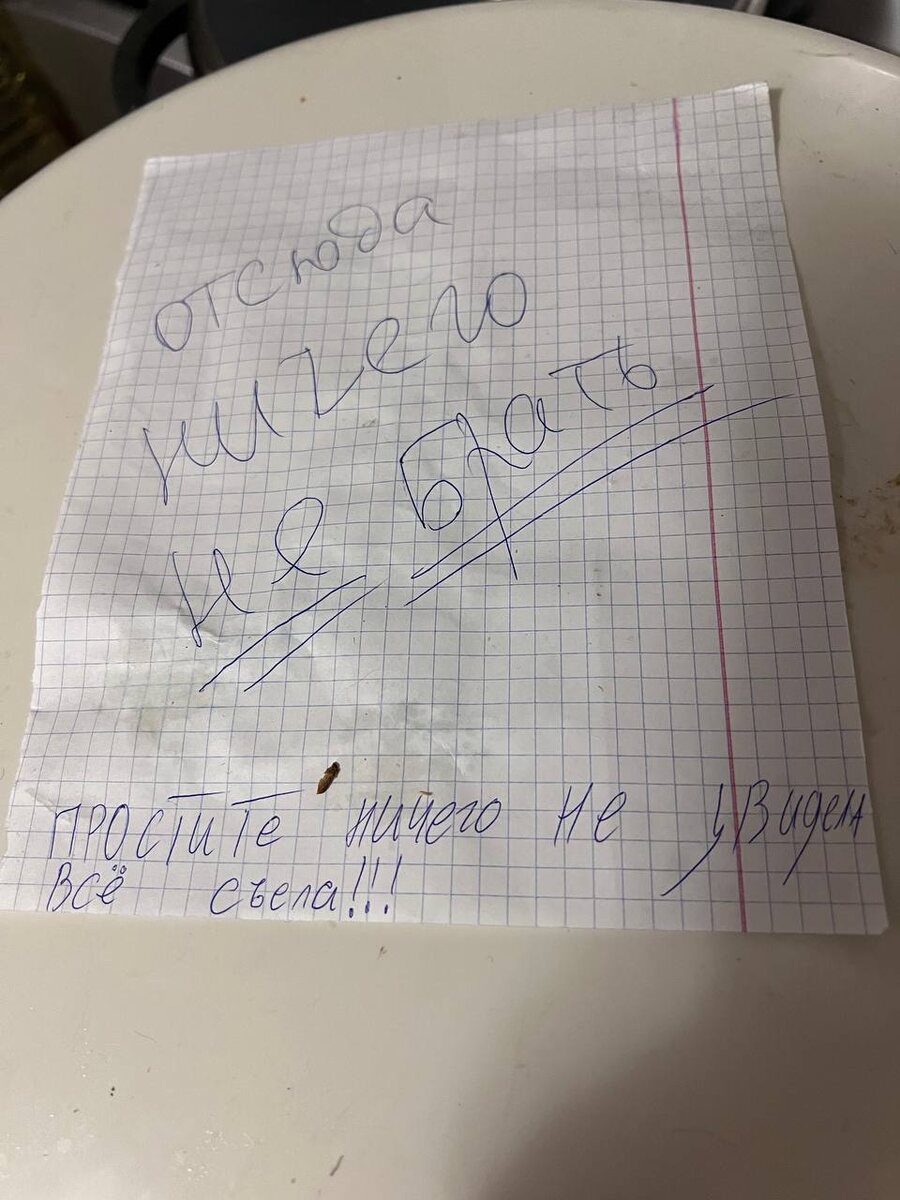 отсюда
ничего
не брать
ПРОСТИТЕ ничего не увидела
всё съела!!!